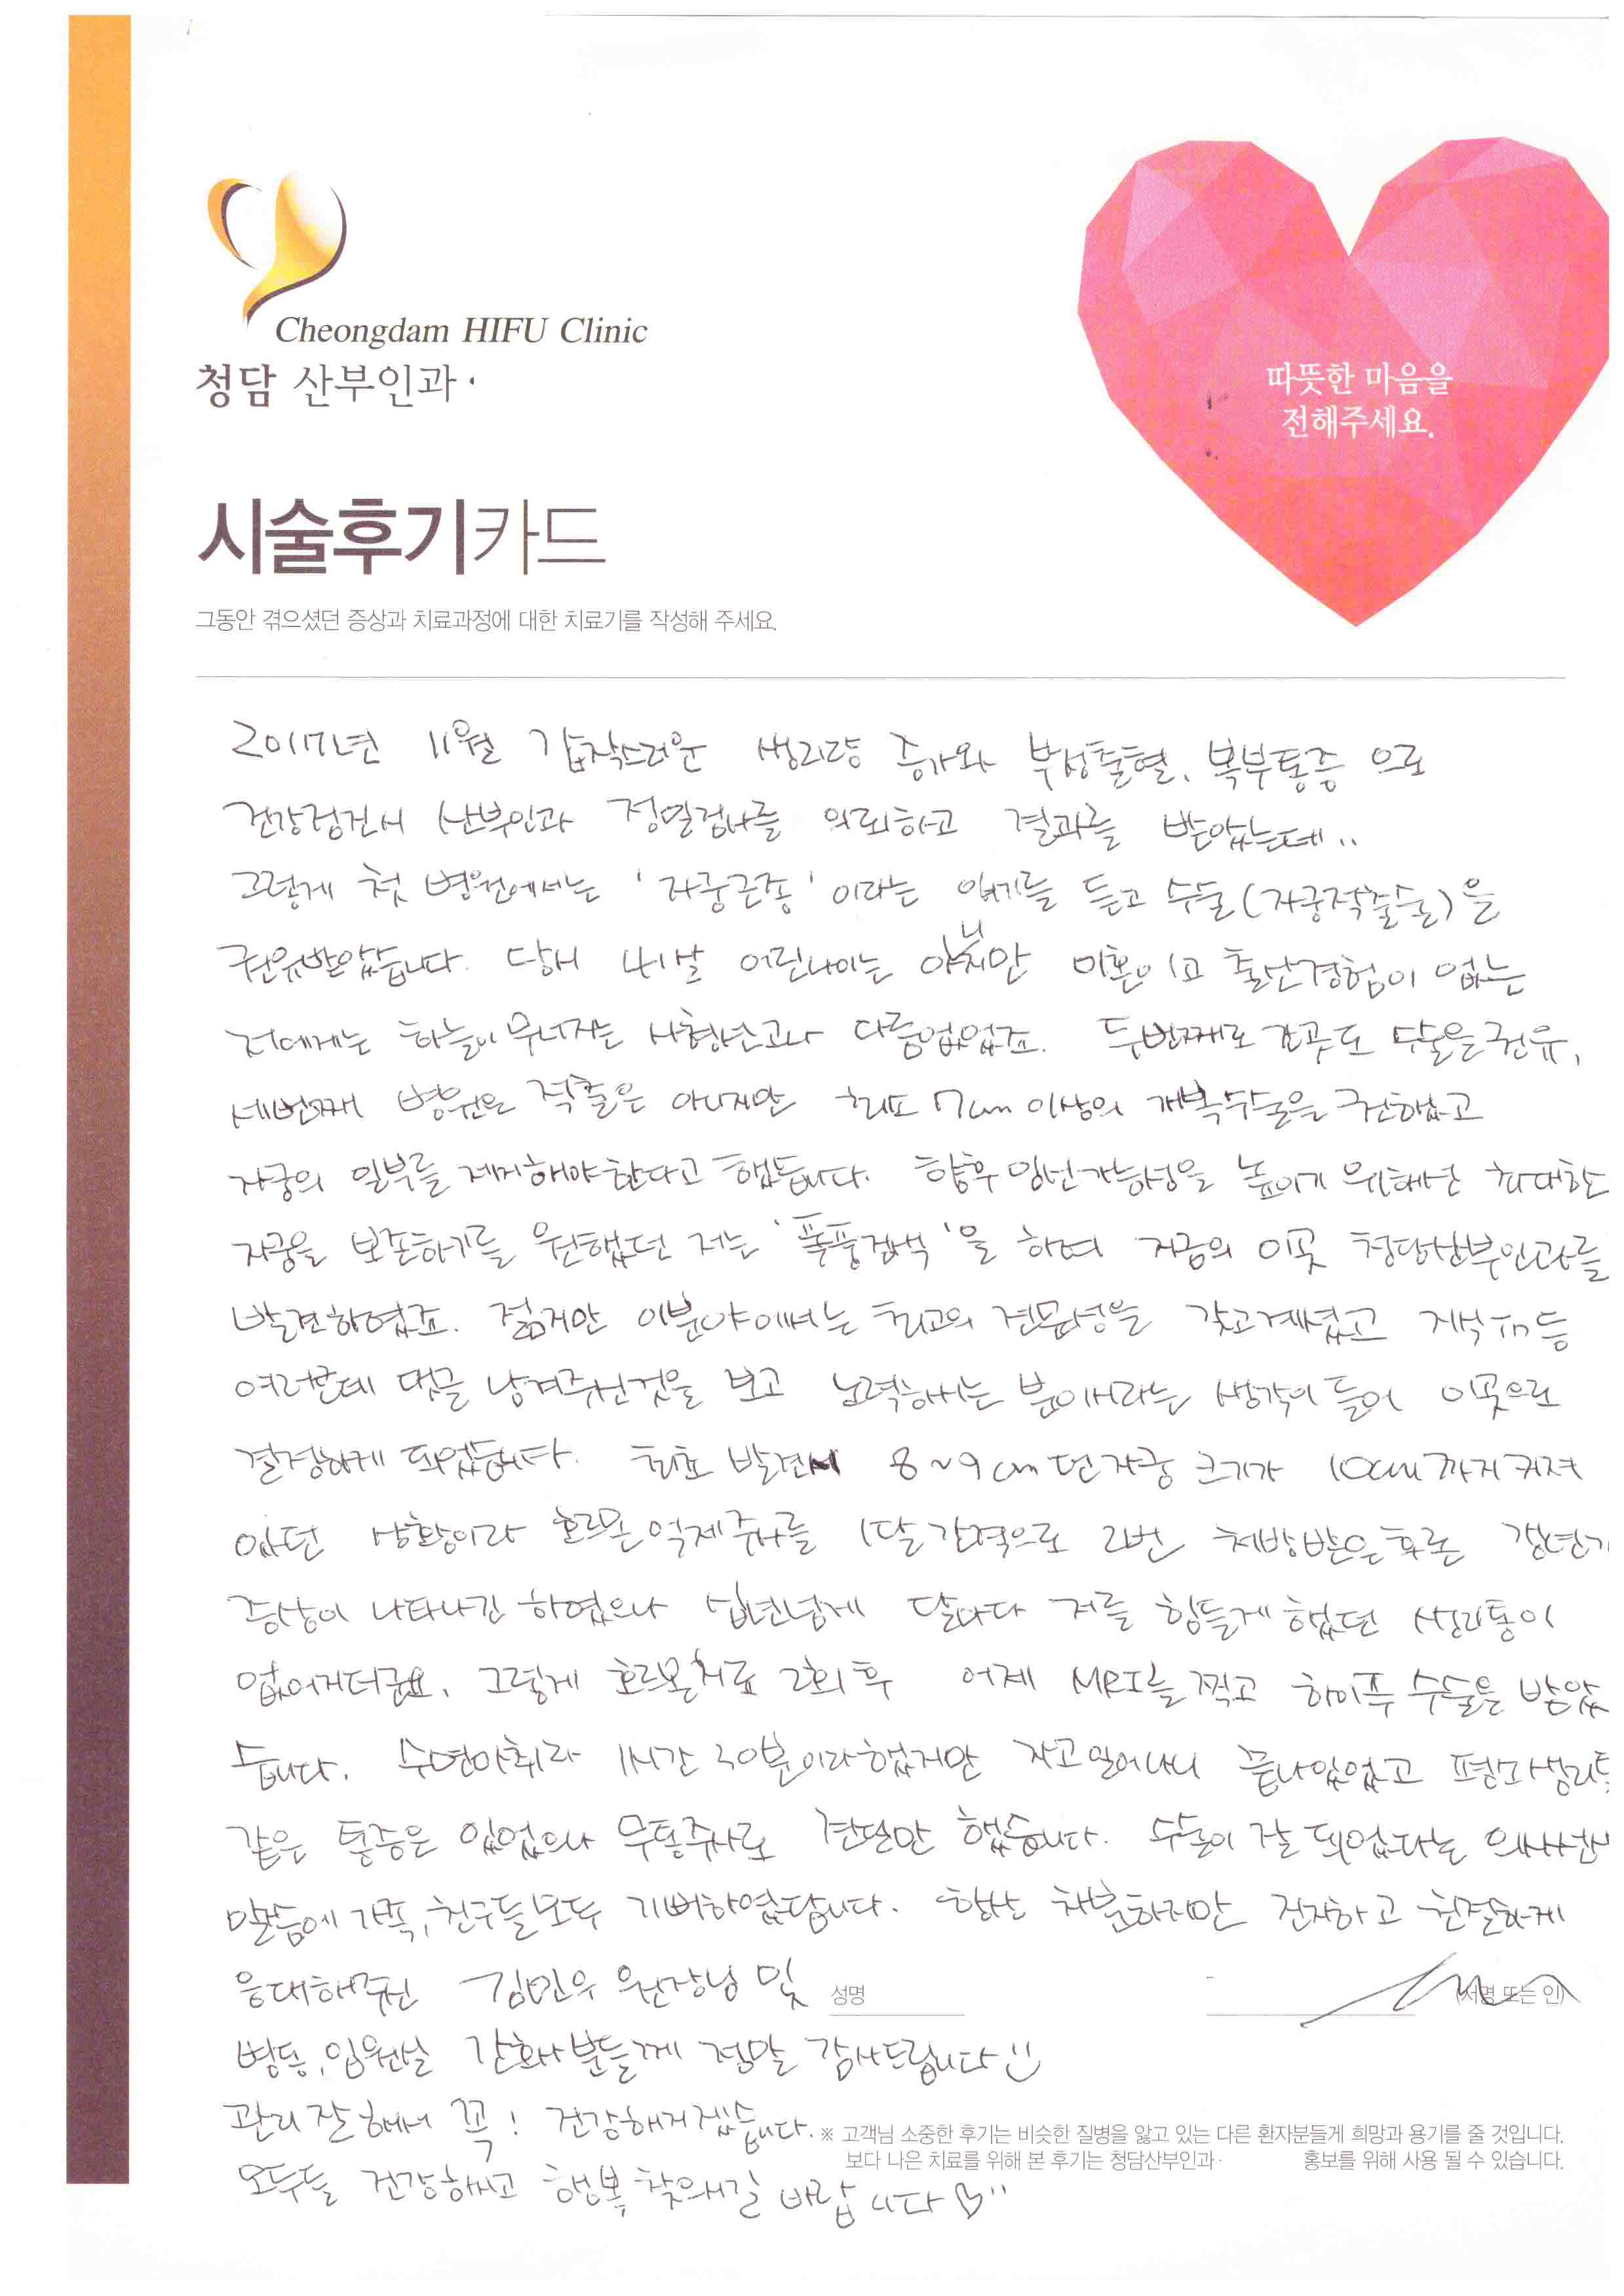 Cheongdam HIFU Clinic
청담 산부인과
따뜻한 마음을
전해주세요.
시술후기카드
그동안 겪으셨던 증상과 치료과정에 대한 치료기를 작성해 주세요.
2017년 11월 갑작스러운 생리량 증가와 부정출혈, 복부통증 으로
건강검진시 산부인과 정밀검사를 의뢰하고 결과를 받았는데..
그렇게 첫 병원에서는 '자궁근종' 이라는 얘기를 듣고 수술(자궁적출술)을
권유받았습니다. 당시 41살 어린나이는 아니지만 미혼이고 출산경험이 없는
저에게는 하늘이 무너지는 사형선고나 다름없었죠. 두번째로 간곳도 수술을 권유,
세번째 병원은 적출은 아니지만 최소 7cm 이상의 개복수술을 권했고
자궁의 일부를 제거해야한다고 했습니다. 향후 임신가능성을 높이기 위해선 최대한
자궁을 보존하기를 원했던 저는 '폭풍검색'을 하여 지금의 이곳 청담산부인과를
발견하였죠. 젊지만 이분야에서는 최고의 전문성을 갖고계셨고 지식in등
여러군데 댓글 남겨주신것을 보고 노력하시는 분이시라는 생각이 들어 이곳으로
결정하게 되었습니다. 최초 발견시 8~9cm 던 자궁 크기가 10cm까지 커져
있던 상황이라 호르몬 억제주사를 1달 간격으로 2번 처방받은후론 갱년기
증상이 나타나긴 하였으나 십년넘게 달마다 저를 힘들게 했던 생리통이
없어지더군요. 그렇게 호르몬치료 2회 후 어제 MRI를 찍고 하이푸 수술을 받았
습니다. 수면마취라 1시간 30분이라했지만 자고일어나니 끝나있었고 평소생리통
같은 통증은 있었으나 무통주사로 견딜만 했습니다. 수술이 잘 되었다는 의사선생
말씀에 가족, 친구들 모두 기뻐하였답니다. 항상 차분하지만 진지하고 친절하게
응대해주신 김민우 원장님 및
성명
(서명 또는 인)
병동, 입원실 간호사 분들께 정말 감사드립니다
관리 잘 해서 꼭! 건강해지겠습니다.
※ 고객님 소중한 후기는 비슷한 질병을 앓고 있는 다른 환자분들게 희망과 용기를 줄 것입니다.
보다 나은 치료를 위해 본 후기는 청담산부인과· 홍보를 위해 사용 될 수 있습니다.
모두들 건강하시고 행복 찾으시길 바랍니다